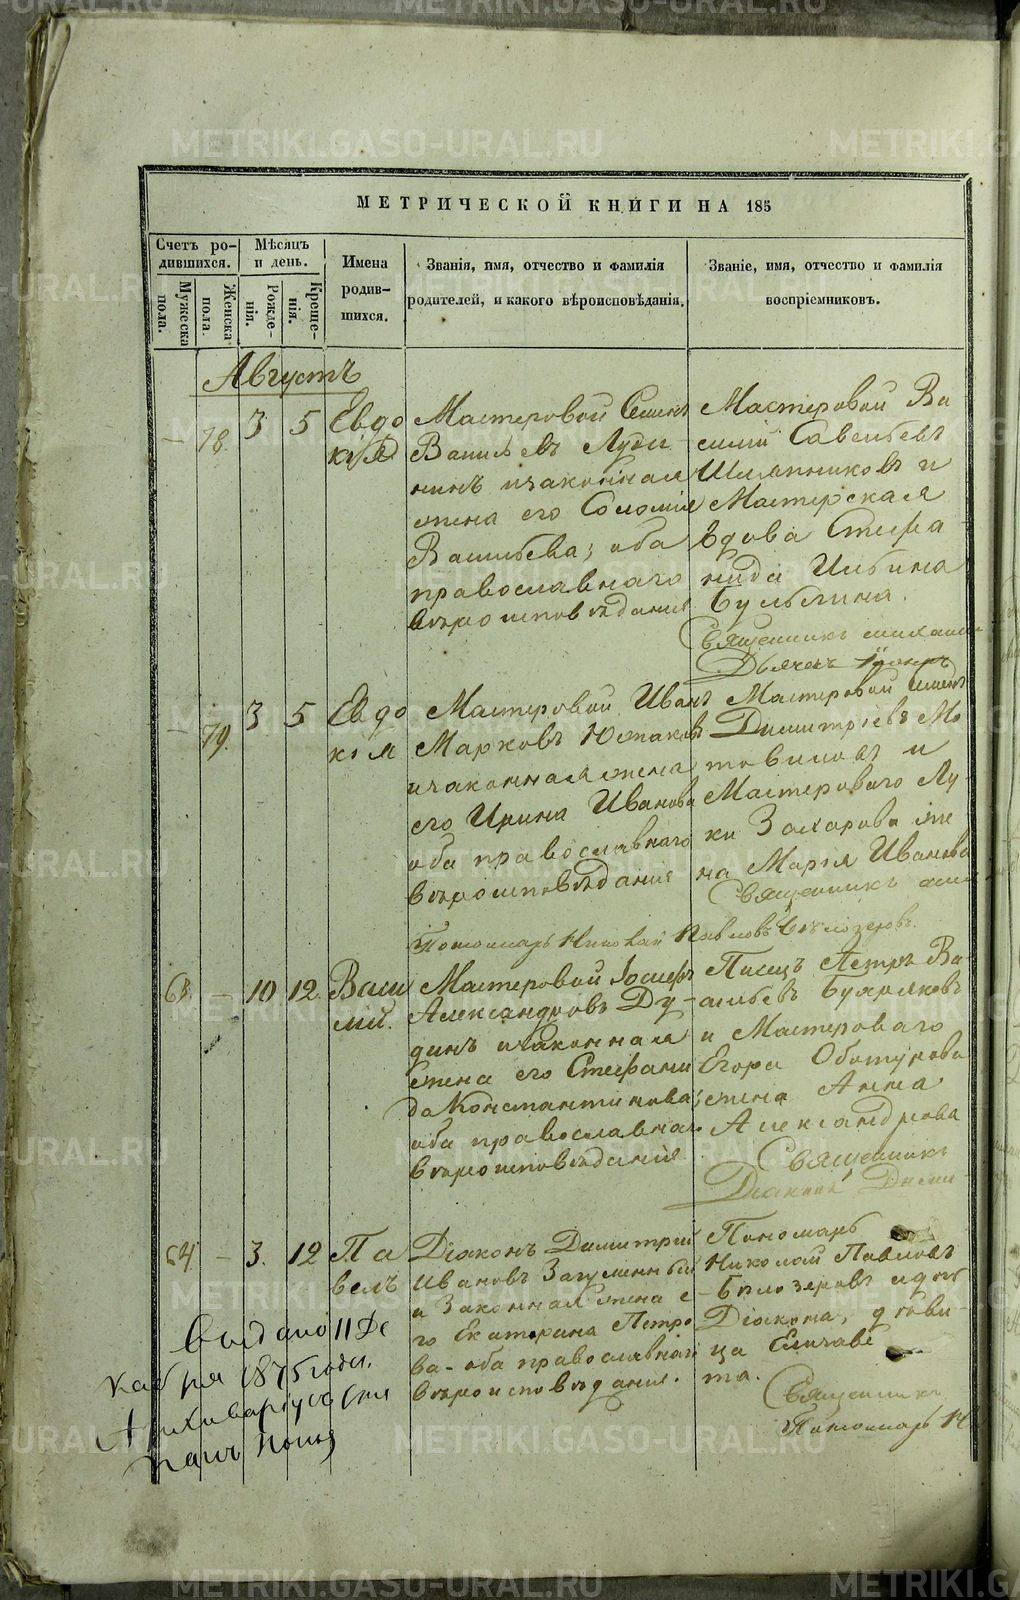 МЕТРИЧЕСКОЙ КНИГИ НА 185
Счетъ ро-
дившихся.
Мужеска
пола.
Женска
пола.
Мѣсяцъ
и день.
Рожде-
нія.
Креще-
нія.
Имена
родив-
шихся.
Званія, имя, отчество и фамилія
родителей, и какого вѣроисповѣданія.
Званіе, имя, отчество и фамилія
воспріемниковъ.
Августъ
— 78. 3 5
Евдо
кія
Мастеровой Семенъ
Васильевъ
нинъ и законная
жена его Соломія
Васильева; оба
православнаго
вѣроисповѣданія
Мастеровой Ва
силій Савельевъ
Шляпниковъ и
Мастерская
вдова Стефа
нида Ильина
Булыгина.
Священникъ Михаил
Дьячекъ
— 79. 3 5
Евдо
кія
Мастеровой Иванъ
Марковъ Юшковъ
и законная жена
его Ирина Иванова
оба православнаго
вѣроисповѣданія
Мастеровой Семенъ
Димитріевъ Мо
товиловъ и
Мастероваго Лу-
ки Захарова же
на Марія Иванова
Священникъ
Пономарь Николай Павловъ Бѣлозеровъ.
63. — 10 12
Васи
лій.
Мастеровой Іосифъ
Александровъ Ду-
динъ и законная
жена его Стефани
да Константинова;
оба православнаго
вѣроисповѣданія
Писецъ Петръ Ва-
сильевъ Буяряковъ
и Мастероваго
Егора Обатурова
жена Анна
Александрова
Священникъ
Діаконъ Дими-
64 — 3. 12
Па
велъ
Діаконъ Димитрій
Ивановъ Загуменный
и Законная жена е
го Екатерина Петро
ва – оба православнаго
вѣроисповѣданія.
Пономарь
Николай Павловъ
Бѣлозеровъ и дочь
Діакона, дѣви-
ца Елизаве
та.
Священникъ
Пономарь Н
Выдано 11 Де
кабря 1875 года.
Архиваріусъ Сте
панъ Попов